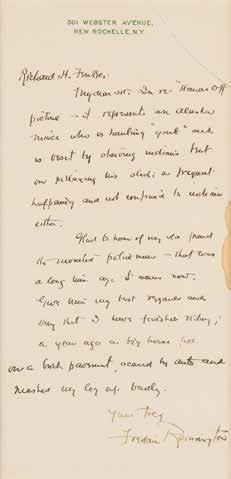 301 WEBSTER AVENUE,
NEW ROCHELLE, N.Y.
Richard H.
My dear sir. In re "Hands Off"
picture - it represents an Alaskan
miner who is hauling "grub" and
is beset by starving indians bent
on pillaging his sled; a frequent
happening and not confined to indians
either.
Glad to hear of my old friend
the mounted policeman - that was
a long time ago it seems now.
Give him my best regards and
say that I have finished riding;
a year ago a big horse fell
on a brick pavement, scared by auto and
mashed my leg up badly.
Yours truly
Frederic Remington